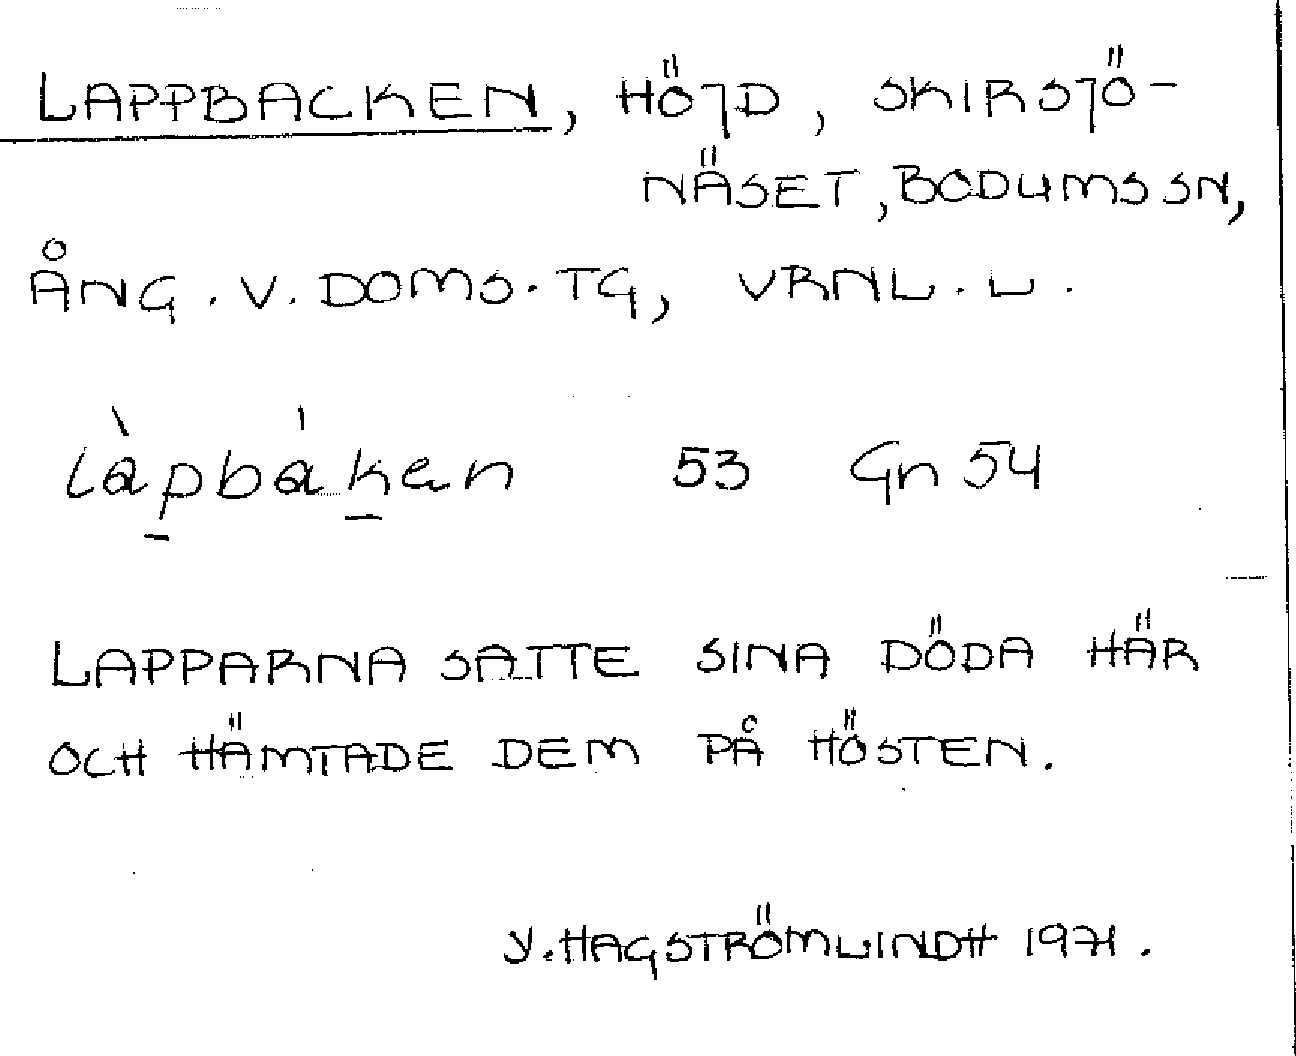 LAPPBACKEN, HÖJD, SKIRSJÖ-
NÄSET, BODUMS SN,
ÅNG. V. DOMS. TG, VRNL. L.
làpbáken 53 Gn 54
LAPPARNA SATTE SINA DÖDA HÄR
OCH HÄMTADE DEM PÅ HÖSTEN.
Y. HAGSTRÖMLINDH 1971.